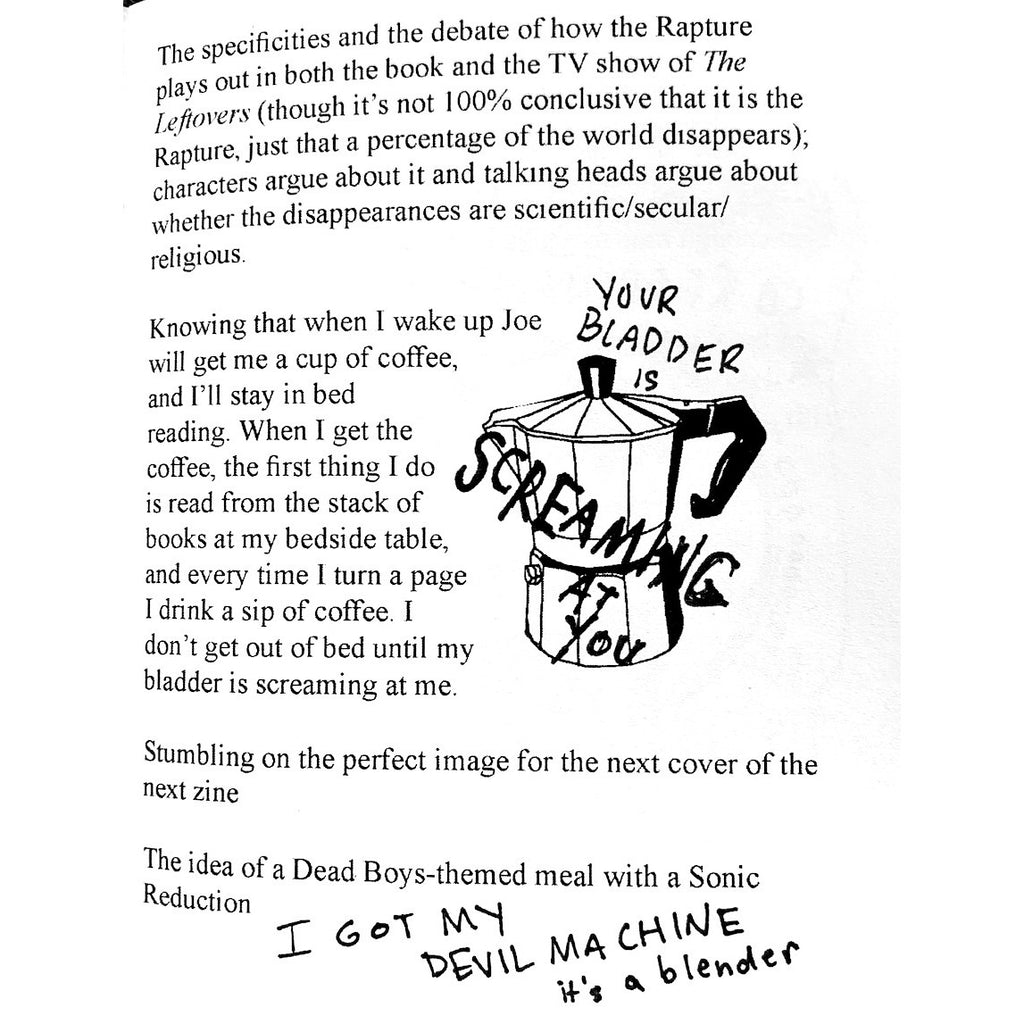 The specificities and the debate of how the Rapture
plays out in both the book and the TV show of The
Leftovers (though it's not 100% conclusive that it is the
Rapture, just that a percentage of the world disappears);
characters argue about it and talking heads argue about
whether the disappearances are scientific/secular/
religious.
Knowing that when I wake up Joe
will get me a cup of coffee,
and I'll stay in bed
reading. When I get the
coffee, the first thing I do
is read from the stack of
books at my bedside table,
and every time I turn a page
I drink a sip of coffee. I
don't get out of bed until my
bladder is screaming at me.
YOUR
BLADDER
IS
SCREAMING
AT
YOU
Stumbling on the perfect image for the next cover of the
next zine
The idea of a Dead Boys-themed meal with a Sonic
Reduction
I GOT MY
DEVIL MACHINE
it's a blender